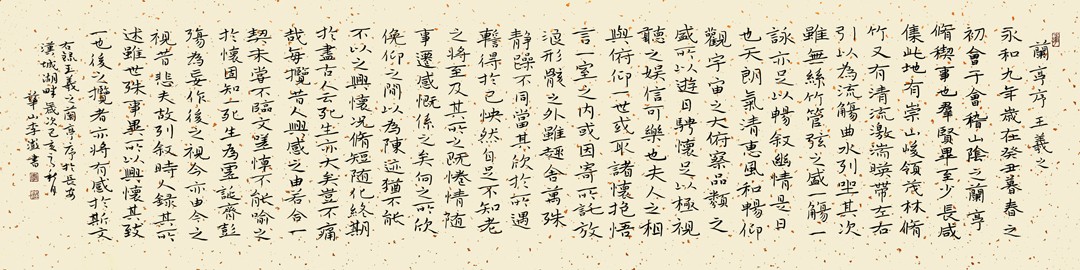 蘭亭序 王羲之
永和九年歲在癸丑暮春之
初會于會稽山陰之蘭亭
脩禊事也群賢畢至少長咸
集此地有崇山峻領茂林脩
竹又有清流激湍暎帶左右
引以為流觴曲水列坐其次
雖無絲竹管弦之盛觴一
詠亦足以暢敘幽情是日
也天朗氣清惠風和暢仰
觀宇宙之大俯察品類之
盛所以遊目騁懷足以極視
聽之娱信可樂也夫人之相
與俯仰一世或取諸懷抱悟
言一室之內或因寄所託放
浪形骸之外雖趣舍萬殊
靜躁不同當其欣於所遇
暫得於己怏然自足不知老
之將至及其所之既惓情随
事遷感慨係之矣向之所欣
俛仰之間以為陳迹猶不能
不以之興懷況脩短随化終期
於盡古人云死生亦大矣豈不痛
哉每攬昔人興感之由若合一
契未嘗不臨文嗟悼不能喻之
於懷固知一死生為虛誕齊彭
殤為妄作後之視今亦由今之
視昔悲夫故列敘時人錄其所
述雖世殊事異所以興懷其致
一也後之攬者亦將有感於斯文
右錄王羲之蘭亭序於長安
漢城湖畔歲次己亥之新月
華山李澂書